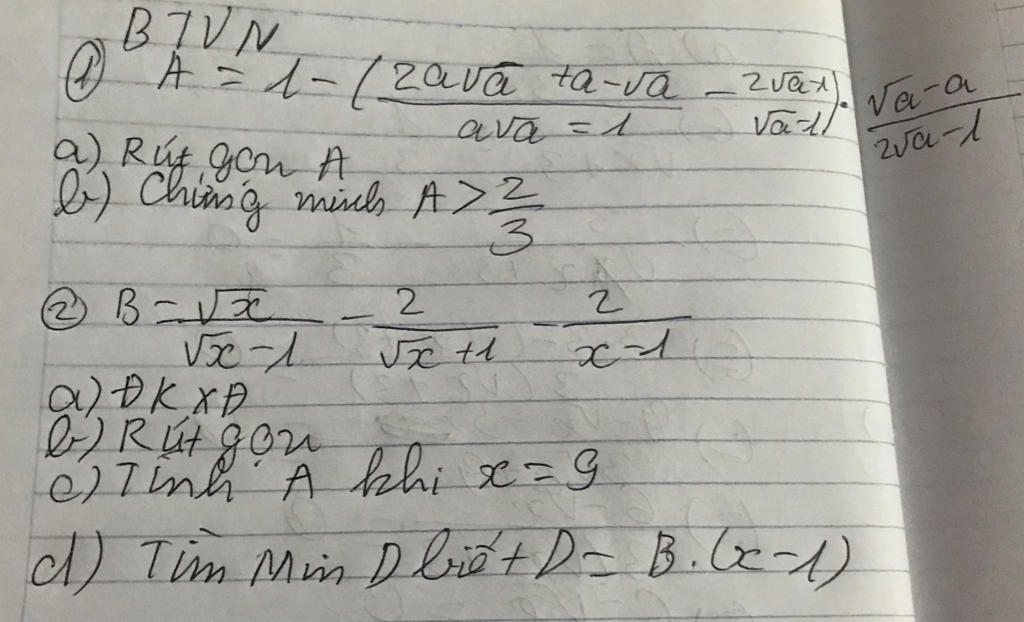 BTVN
① A = 1 - (\frac{2a√a + a - √a}{a√a = 1} - \frac{2√a-1}{√a-1}) . \frac{√a - a}{2√a - 1}
a) Rút gọn A
b) Chứng minh A > \frac{2}{3}
② B = \frac{√x}{√x - 1} - \frac{2}{√x + 1} - \frac{2}{x - 1}
a) ĐKXĐ
b) Rút gọn
c) Tính A khi x = 9
d) Tìm Min D biết D = B.(x-1)